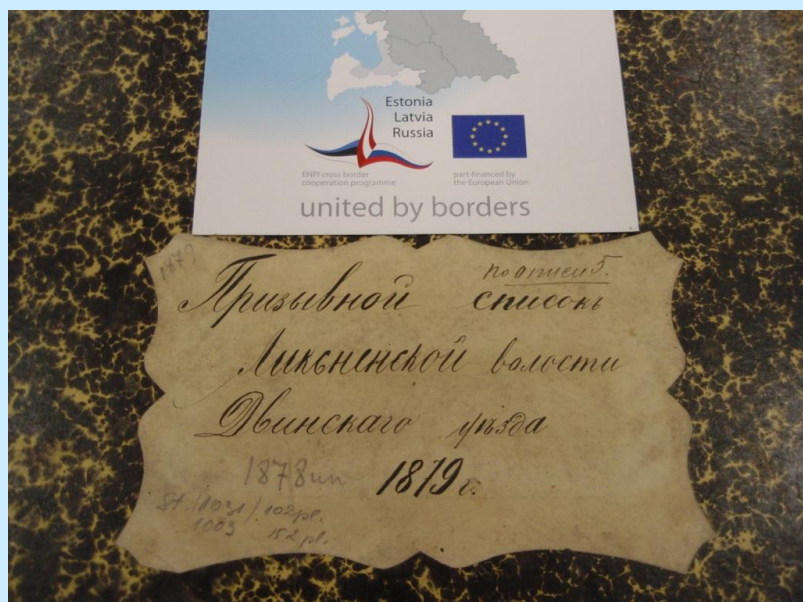 Estonia
Latvia
Russia
ENPI cross border
cooperation programme
part-financed by
the European Union
united by borders
1879
По описи 5.
Призывной списокъ
Ликсненской волости
Двинскаго уѣзда
1878 un 1879 г.
St. (1031) 102 pl.
1003 152 pl.